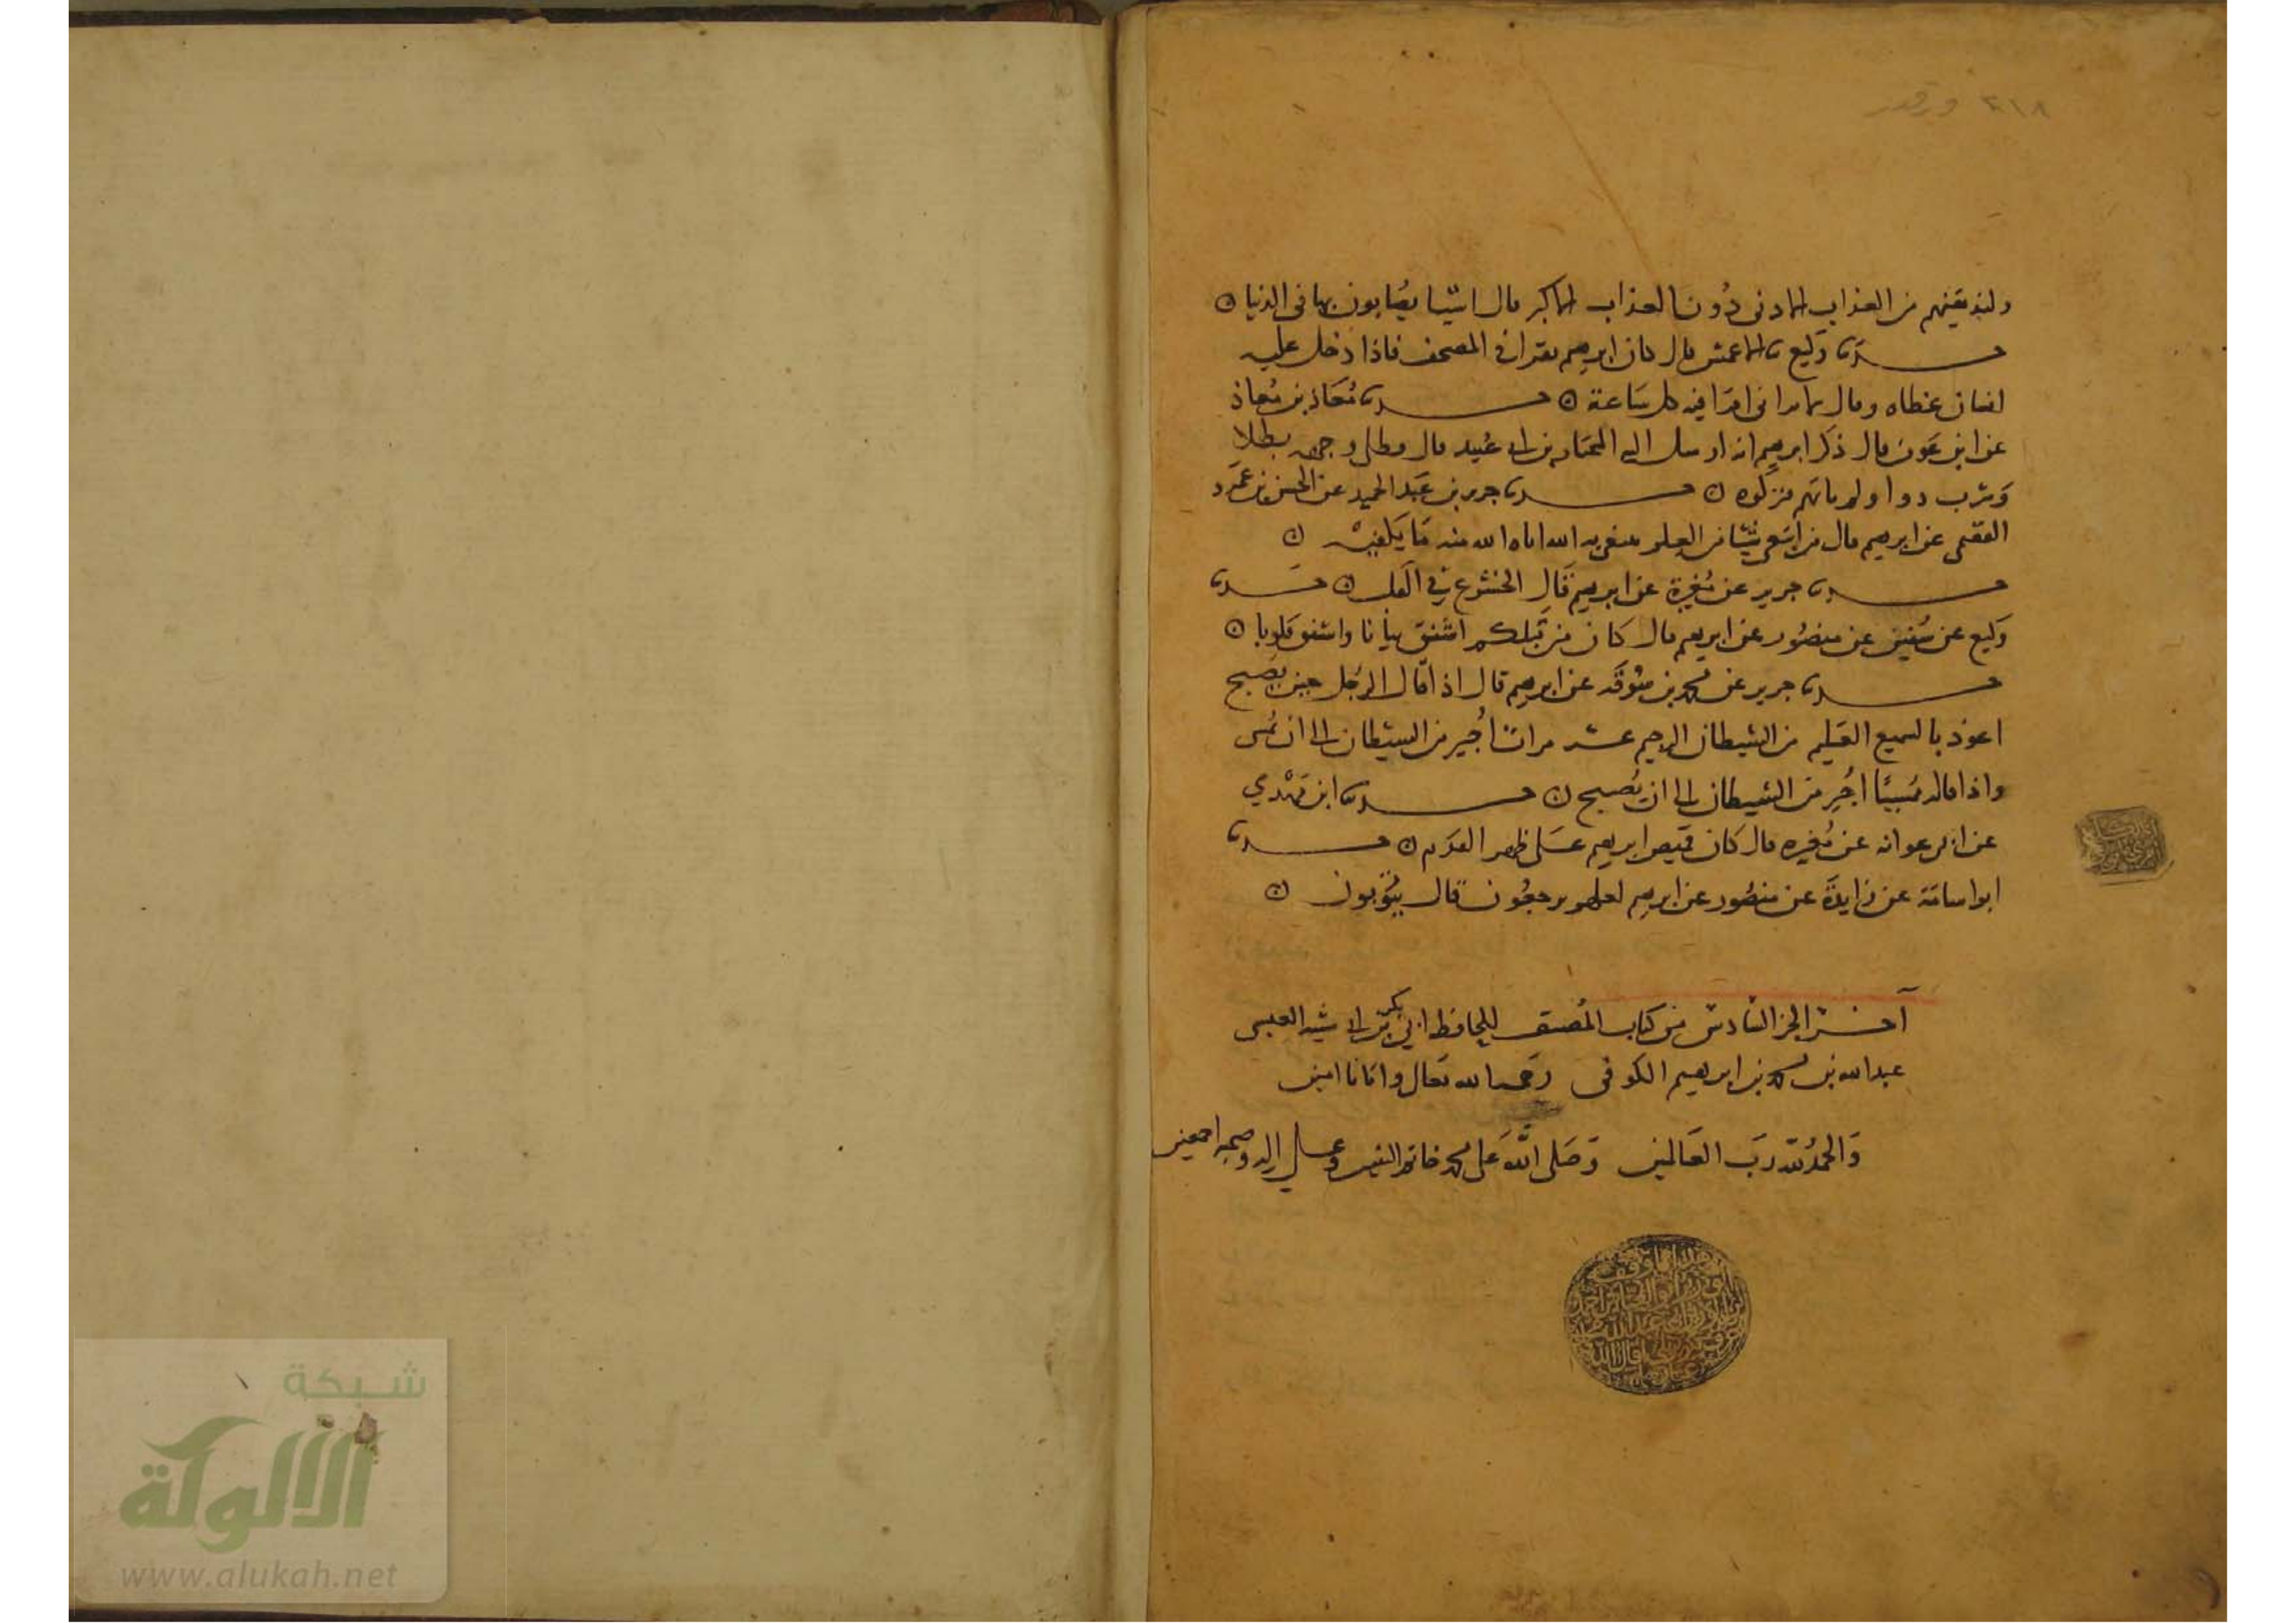 ٢١٨ ورقه
ولنذيقنهم من العذاب الادنى دُون العذاب الاكبر قال اشيا يصُابون بها في الدنيا ن
حدثنا وكيع نا الاعمش قال كان ابرهيم يقرا في المصحف فاذا دخل عليه
انسان غطاه وقال لا يراني اقرا فيه كل سَاعة ن حدثنا مُعَاذ بن مُعاذ
عن ابن عَون قال ذكر ابرهيم انه ارسل اليه المختار بن ابي عُبيد قال فطلى وجهه بطلا
وَشرب دوا ولم ياتهم فتركوه ن حدثنا جرير بن عَبد الحميد عن الحسن بن عَمرو
الفقمي عن ابرهيم قال من ابتغى شيئا من العلم يبتغي به الله اتاه الله منه مَا يَكفيْه ن
حدثنا جرير عن مُغيرة عن ابرهيم قَال الخشوع في القلب ن حدثنا
وكيع عن سُفين عن منصُور عن ابرهيم قال كان من قبلكم اشفق ثيابا واشفق قلوبا ن
حدثنا جرير عن محمد بن سُوقَه عن ابرهيم قال اذا قال الرجُل حين يصُبح
اعوذ بالسميع العَليم من الشيطان الرجيم عشر مرات اُجير من الشيطان الى ان يُمسي
واذا قاله مُمسيًا اجُير من الشيطان الى ان يُصبح ن حدثنا ابن مَهْدي
عن ابي عوانه عن مُغيره قال كان قميص ابرهيم عَلى ظهر القدَم ن حدثنا
ابو اسامَة عن زايدَة عن منصُور عن ابرهيم لعلهم يرجعُون قال يتُوبون ن
آخر الجز السَّادس من كتاب المُصنف للحافظ ابي بكر بن ابي شيبه العبسي
عبد الله بن محمد بن ابرهيم الكوفي رَحمه الله تعَالى وايانا امين
وَالحمدُ لله رَبّ العَالمين وَصَلى اللّه عَلى محمد خاتم النبيين وعلى اله وصحبه اجمعين
شبكة
الألوكة
www.alukah.net